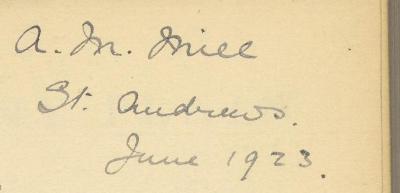 A. M. Mill
St. Andrews.
June 1923.